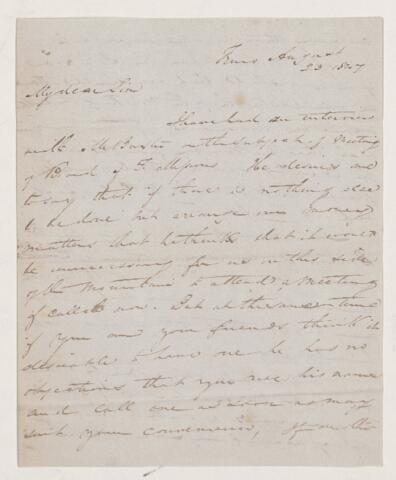 August
23 1847
My dear Sir
I have had an interview
with Mr on the subject of meeting
of Board of F. Missions He desires me
to say that if there is nothing else
to be done but arrange our money
matters that he thinks that it is
be unnecessary for us on this side
of the Mountains to attend a meeting
if called now. But at the same time
if you and your friends think it
desirable to have one he has no
objections that you use his name
and call one as soon as may
suit your convenience, If on the